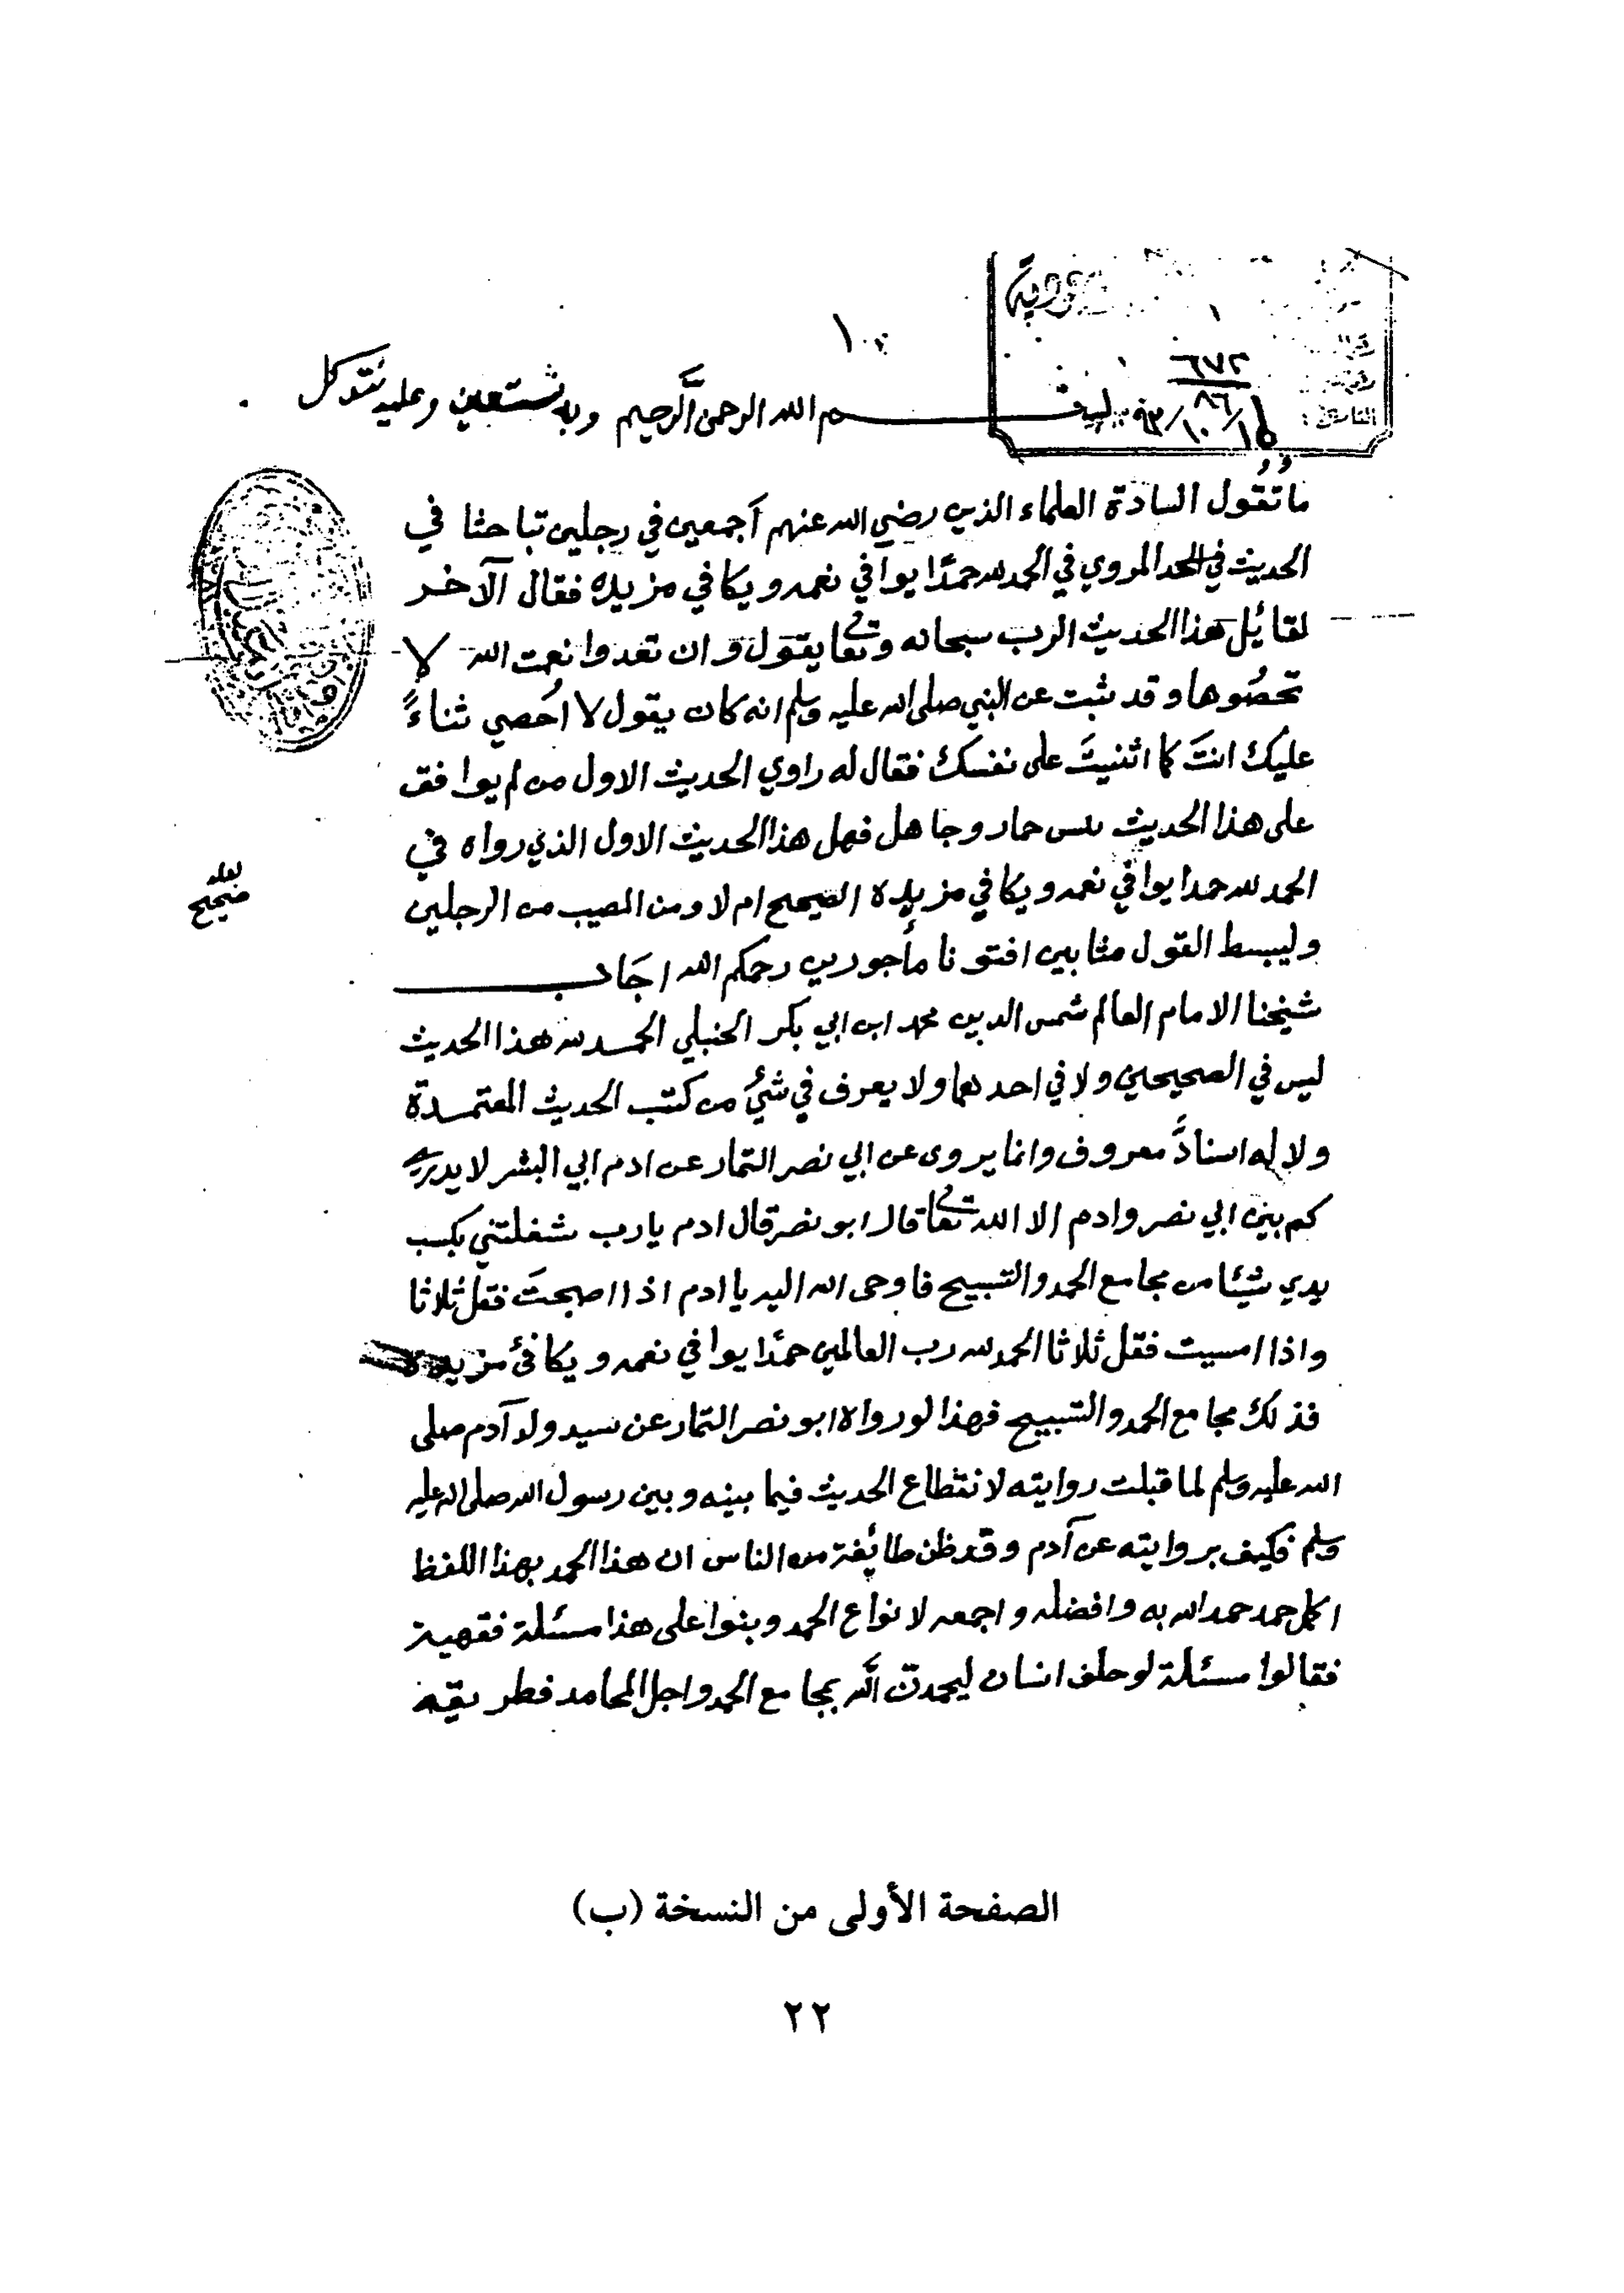 ١٠
٦٧٢
٨٦/
بسم الله الرحمن الرحيم وبه نستعين وعليه نتوكل
ما تقول السادة العلماء الذين رضي الله عنهم أجمعين في رجلين تباحثا في
الحديث في الحمد المروي في الحمد لله حمدًا يوافي نعمه ويكافي مزيده فقال الآخر
لقائل هذا الحديث الرب سبحانه وتعالى يقول وان تعدوا نعمت الله لا
تحصُوها وقد ثبت عن النبي صلى الله عليه وسلم انه كان يقول لا اُحصي ثناءً
عليك انتَ كما اثنيتَ على نفسك فقال له راوي الحديث الاول من لم يوافق
على هذا الحديث حمار وجاهل فهل هذا الحديث الاول الذي رواه في
الحمد لله حمدا يوافي نعمه ويكافي مزيده الصحيح ام لا ومن المصيب من الرجلين
لعله
صحيح
وليبسط القول مثابين افتونا مأجورين رحمكم الله اجَاب
شيخنا الامام العالم شمس الدين محمد ابن ابي بكر الحنبلي الحمد لله هذا الحديث
ليس في الصحيحين ولا في احدهما ولا يعرف في شيء من كتب الحديث المعتمدة
ولا له اسنادً معروف وانما يروى عن ابي نصر التمار عن ادم ابي البشر لا يدرى
كم بين ابي نصر وادم الا الله تعالى قال ابو نصر قال ادم يا رب شغلتني بكسب
يدي شيئا من مجامع الحمد والتسبيح فاوحى الله اليه يا ادم اذا اصبحتَ فقل ثلاثا
واذا امسيت فقل ثلاثا الحمد لله رب العالمين حمدًا يوافي نعمه ويكافئ مزيده
فذلك مجامع الحمد والتسبيح فهذا لو رواه ابو نصر التمار عن سيد ولد آدم صلى
الله عليه وسلم لما قبلت روايته لانقطاع الحديث فيما بينه وبين رسول الله صلى الله عليه
وسلم فكيف بروايته عن آدم وقد ظن طائفة من الناس ان هذا الحمد بهذا اللفظ
اكمل حمد حمد الله به وافضله واجمعه لانواع الحمد وبنوا على هذا مسئلة فقهية
فقالوا مسئلة لو حلف انسان ليحمدنّ الله بمجامع الحمد واجل المحامد فطريقه
الصفحة الأولى من النسخة (ب)
٢٢